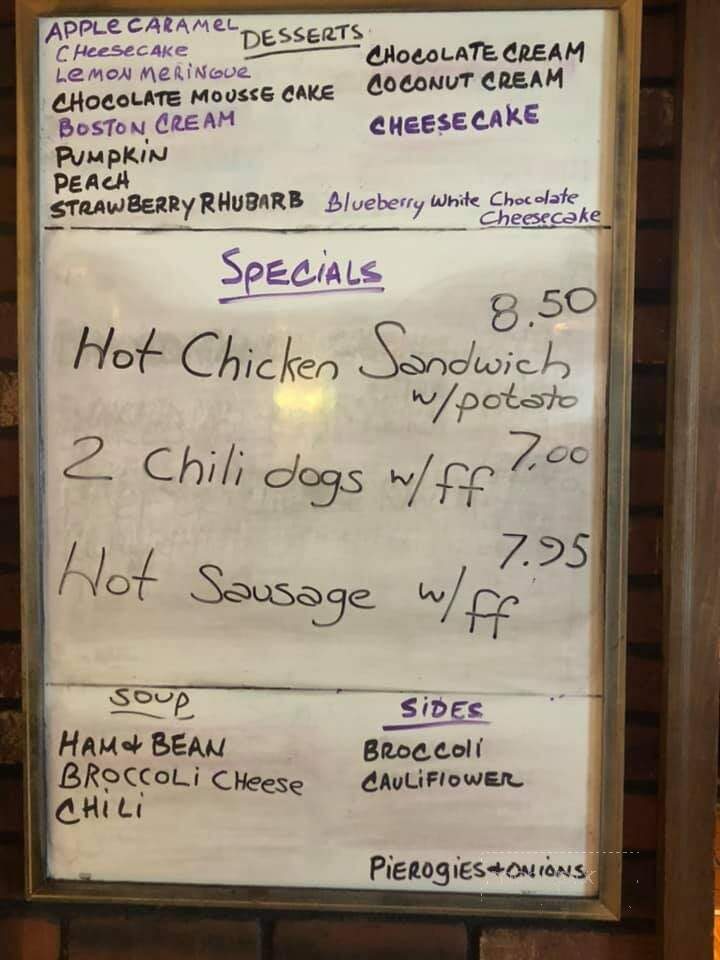 DESSERTS
APPLE CARAMEL
CHEESECAKE
LEMON MERINGUE
CHOCOLATE MOUSSE CAKE
BOSTON CREAM
PUMPKIN
PEACH
STRAWBERRY RHUBARB
CHOCOLATE CREAM
COCONUT CREAM
CHEESECAKE
Blueberry White Chocolate
Cheesecake
SPECIALS
8.50
Hot Chicken Sandwich
w/potato
2 Chili dogs w/ff 7.00
7.95
Hot Sausage w/ff
SOUP
HAM & BEAN
BROCCOLI CHEESE
CHILI
SIDES
BROCCOLI
CAULIFLOWER
PIEROGIES + ONIONS